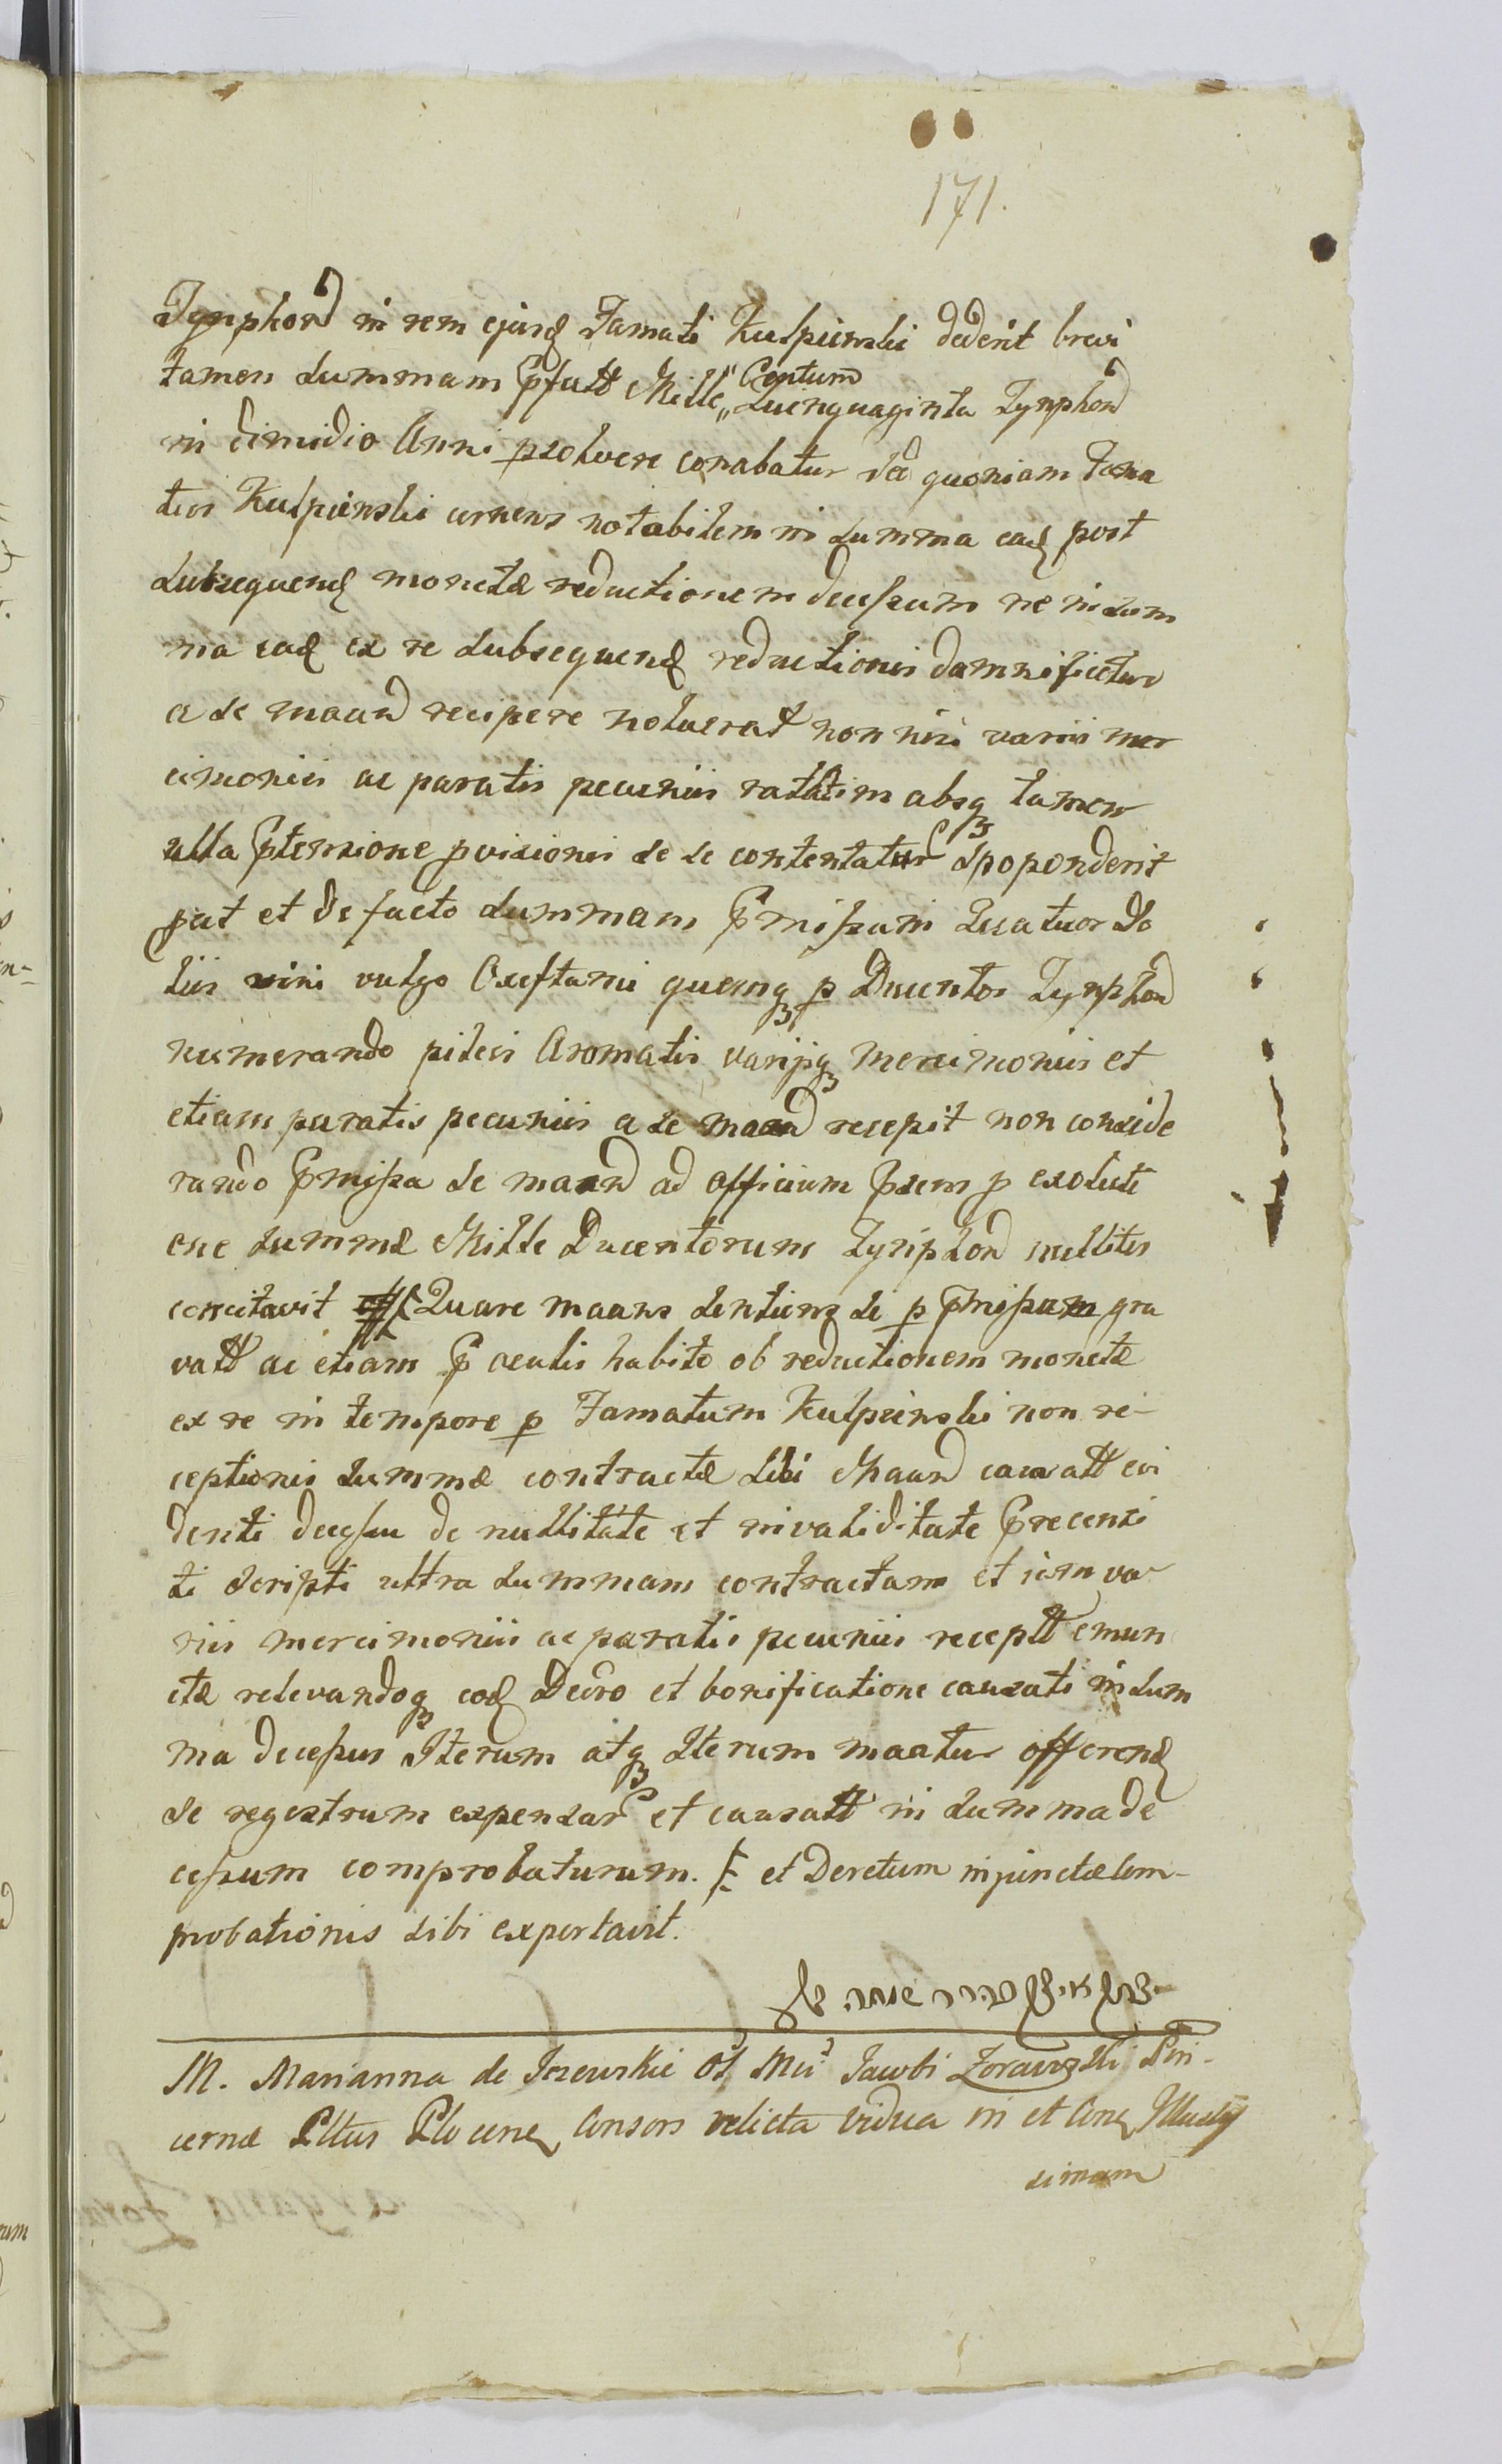 171.
Tynphor in rem ejusq Famati Kulpinski dederit brevi
tamen summam pfatt Mille „ Centum Quinquaginta Tynphor
in dimidio Anni psolvere conabatur sed quoniam Fama
tus Kulpinski cernens notabilem in summa eadq post
subsequenq monetæ reductionem decessum ne in sum
ma eadq ex re subsequenq reductionis damnificetur
a se maand recipere noluerat non nisi variis mer
cimoniis ac paratis pecuniis rattatim absq tamen
ulla ptensione pvisionis se se contentatur spoponderit
put et de facto summam pmissam Quatuor Do
liis vini vulgo Oxeftami quemq p Ducentos Tynphor
numerando pileis Aromatis varijsq mercimoniis et
etiam paratis pecuniis a se maand recepit non conside
rando pmissa se maand ad officium psens p exolute
one summæ Mille Ducentorum Tynphor nulliter
concitavit Quare maans sentiens se p pmissam gra
vatt ac etiam p oculis habito ob reductionem monetæ
ex re in tempore p Famatum Kulpinski non re-
ceptionis summæ contractæ sibi Maand causatt evi
denti decessu de nullitate et invaliditate precensi
ti scripti ultra summam contractam et jam va
riis mercimoniis ac paratis pecuniis receptt emun
ctæ relevandoq eodq Decro et bonificatione causati in sum
ma decessus Iterum atq Iterum maatur offerenq
se regestrum expensar et causatt in summa de
cessum comprobaturum. et Decretum injunctæ Com-
probationis sibi exportavit.
M. Marianna de Jezewskie Ol. Mci Jacobi Zorawski Pin-
cernæ Pltus Plocenq Consors relicta vidua in et Conq Illustris
simam